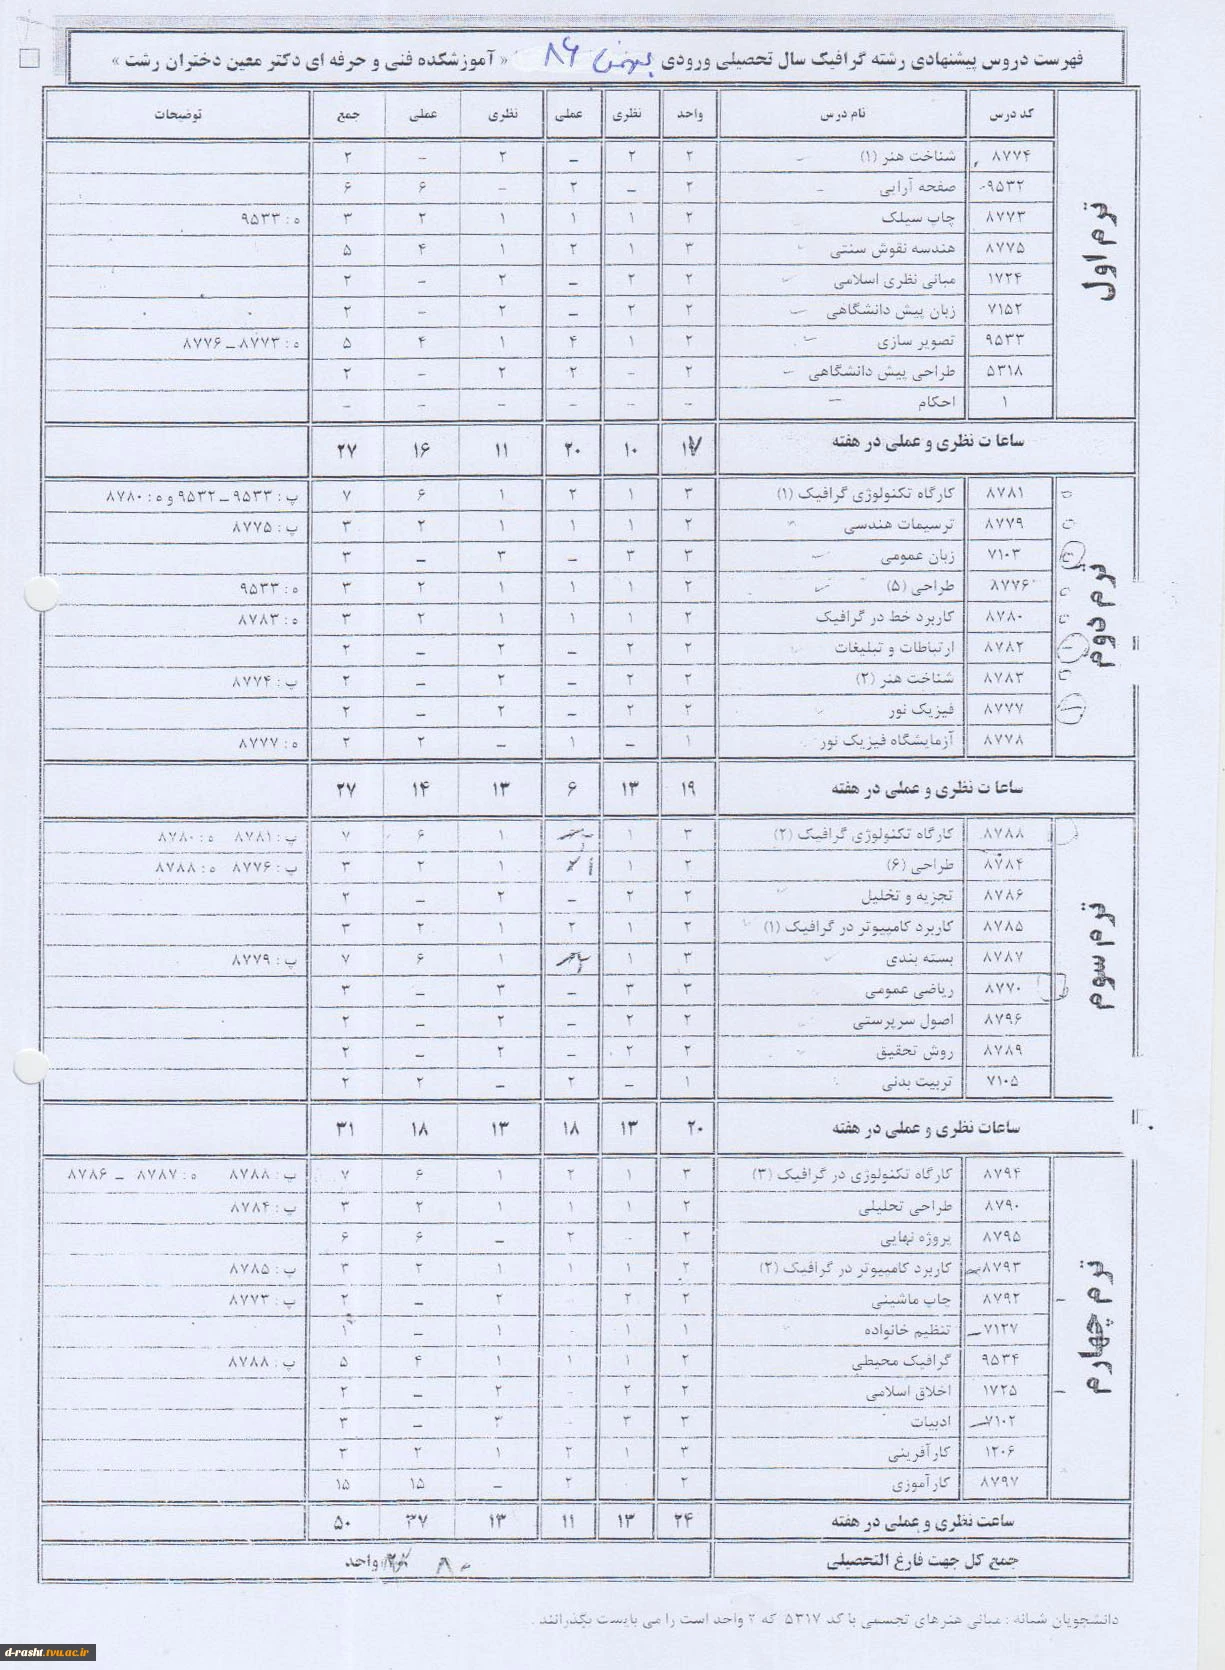 فهرست دروس پیشنهادی رشته گرافیک سال تحصیلی ورودی بهمن ۸۶ « آموزشکده فنی و حرفه ای دکتر معین دختران رشت »
کد درس نام درس واحد نظری عملی نظری عملی جمع توضیحات
ترم اول
۸۷۷۴ شناخت هنر (۱) ۲ ۲ – ۲ – ۲
۹۵۳۲ صفحه آرایی ۲ – ۲ – ۶ ۶
۸۷۷۳ چاپ سیلک ۲ ۱ ۱ ۱ ۲ ۳ ه : ۹۵۳۳
۸۷۷۵ هندسه نقوش سنتی ۳ ۱ ۲ ۱ ۴ ۵
۱۷۲۴ مبانی نظری اسلامی ۲ ۲ – ۲ – ۲
۷۱۵۲ زبان پیش دانشگاهی ۲ ۲ – ۲ – ۲
۹۵۳۳ تصویر سازی ۲ ۱ ۴ ۱ ۴ ۵ ه : ۸۷۷۳ – ۸۷۷۶
۵۳۱۸ طراحی پیش دانشگاهی ۲ – ۲ ۲ – ۲
۱ احکام – – – – – –
ساعات نظری و عملی در هفته ۱۷ ۱۰ ۲۰ ۱۱ ۱۶ ۲۷
ترم دوم
۸۷۸۱ کارگاه تکنولوژی گرافیک (۱) ۳ ۱ ۲ ۱ ۶ ۷ پ : ۹۵۳۳ – ۹۵۳۲ و ه : ۸۷۸۰
۸۷۷۹ ترسیمات هندسی ۲ ۱ ۱ ۱ ۲ ۳ پ : ۸۷۷۵
۷۱۰۳ زبان عمومی ۳ ۳ – ۳ – ۳
۸۷۷۶ طراحی (۵) ۲ ۱ ۱ ۱ ۲ ۳ ه : ۹۵۳۳
۸۷۸۰ کاربرد خط در گرافیک ۲ ۱ ۱ ۱ ۲ ۳ ه : ۸۷۸۳
۸۷۸۲ ارتباطات و تبلیغات ۲ ۲ – ۲ – ۲
۸۷۸۳ شناخت هنر (۲) ۲ ۲ – ۲ – ۲ پ : ۸۷۷۴
۸۷۷۷ فیزیک نور ۲ ۲ – ۲ – ۲
۸۷۷۸ آزمایشگاه فیزیک نور ۱ – ۱ – ۲ ۲ ه : ۸۷۷۷
ساعات نظری و عملی در هفته ۱۹ ۱۳ ۶ ۱۳ ۱۴ ۲۷
ترم سوم
۸۷۸۸ کارگاه تکنولوژی گرافیک (۲) ۳ ۱ ۱ ۶ ۷ پ : ۸۷۸۱ ه : ۸۷۸۰
۸۷۸۴ طراحی (۶) ۲ ۱ ۱ ۱ ۲ ۳ پ : ۸۷۷۶ ه : ۸۷۸۸
۸۷۸۶ تجزیه و تحلیل ۲ ۲ – ۲ – ۲
۸۷۸۵ کاربرد کامپیوتر در گرافیک (۱) ۲ ۱ ۲ ۱ ۲ ۳
۸۷۸۷ بسته بندی ۳ ۱ ۱ ۶ ۷ پ : ۸۷۷۹
۸۷۷۰ ریاضی عمومی ۳ ۳ – ۳ – ۳
۸۷۹۶ اصول سرپرستی ۲ ۲ – ۲ – ۲
۸۷۸۹ روش تحقیق ۲ ۲ – ۲ – ۲
۷۱۰۵ تربیت بدنی ۱ – ۲ – ۲ ۲
ساعات نظری و عملی در هفته ۲۰ ۱۳ ۱۸ ۱۳ ۱۸ ۳۱
ترم چهارم
۸۷۹۴ کارگاه تکنولوژی در گرافیک (۳) ۳ ۱ ۲ ۱ ۶ ۷ پ : ۸۷۸۸ ه : ۸۷۸۷ – ۸۷۸۶
۸۷۹۰ طراحی تحلیلی ۲ ۱ ۱ ۱ ۲ ۳ پ : ۸۷۸۴
۸۷۹۵ پروژه نهایی ۲ – ۲ – ۶ ۶
۸۷۹۳ کاربرد کامپیوتر در گرافیک (۲) ۲ ۱ ۱ ۱ ۲ ۳ پ : ۸۷۸۵
۸۷۹۲ چاپ ماشینی ۲ ۲ ۲ – ۲ پ : ۸۷۷۳
۷۱۲۷ تنظیم خانواده ۱ ۱ ۱ – ۱
۹۵۳۴ گرافیک محیطی ۲ ۱ ۱ ۱ ۴ ۵ پ : ۸۷۸۸
۱۷۲۵ اخلاق اسلامی ۲ ۲ ۲ – ۲
۷۱۰۲ ادبیات ۳ ۳ ۳ – ۳
۱۲۰۶ کارآفرینی ۳ ۱ ۲ ۱ ۲ ۳
۸۷۹۷ کارآموزی ۲ ۲ – ۱۵ ۱۵
ساعت نظری و عملی در هفته ۲۴ ۱۳ ۱۱ ۱۳ ۳۷ ۵۰
جمع کل جهت فارغ التحصیلی ۸۰ واحد
دانشجویان شبانه : مبانی هنرهای تجسمی با کد ۵۳۱۷ که ۲ واحد است را می بایست بگذرانند .
d-rasht.tvu.ac.ir